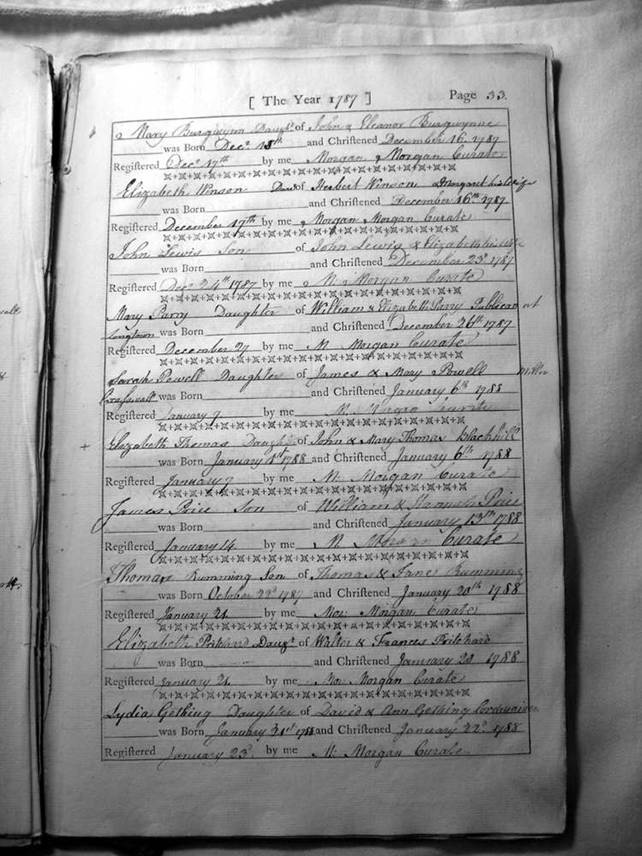 [ The Year 1787 ] Page 33.
Mary Burgwynn Daugr. of John & Eleanor Burgwynne
was Born Decr. 13th and Christened December 16. 1787
Registered Decr. 17th by me Morgan Morgan Curate
Elizabeth Winson Daur of Herbert Winson & Margaret his Wife
was Born and Christened December 16th 1787
Registered December 17th by me Morgan Morgan Curate
John Lewis Son of John Lewis & Elizabeth his Wife
was Born and Christened December 23d 1787
Registered Decr 24th 1787 by me M. Morgan Curate
Mary Parry Daughter of William & Elizabeth Parry Publican at
Longtown was Born and Christened December 26th 1787
Registered December 27 by me M. Morgan Curate
Sarah Powell Daughter of James & Mary Powell Miller
was Born and Christened January 6th 1788
Registered January 7 by me M. Morgan Curate
Elizabeth Thomas Daughter of John & Mary Thomas Blackhill
was Born January 1st 1788 and Christened January 6th 1788
Registered January 7 by me M. Morgan Curate
James Price Son of William & Price
was Born and Christened January 13th 1788
Registered January 14 by me M. Morgan Curate
Thomas Rumming Son of Thomas & Jane Rumming
was Born October 22d 1787 and Christened January 20th 1788
Registered January 21 by me Mor. Morgan Curate
Elizabeth Pritchard Daugr. of Walter & Frances Pritchard
was Born and Christened January 20 1788
Registered January 21 by me Mor Morgan Curate
Lydia Gething Daughter of David & Ann Gething Cordwainer
was Born January 21st 1788 and Christened January 22d 1788
Registered January 23d by me M. Morgan Curate